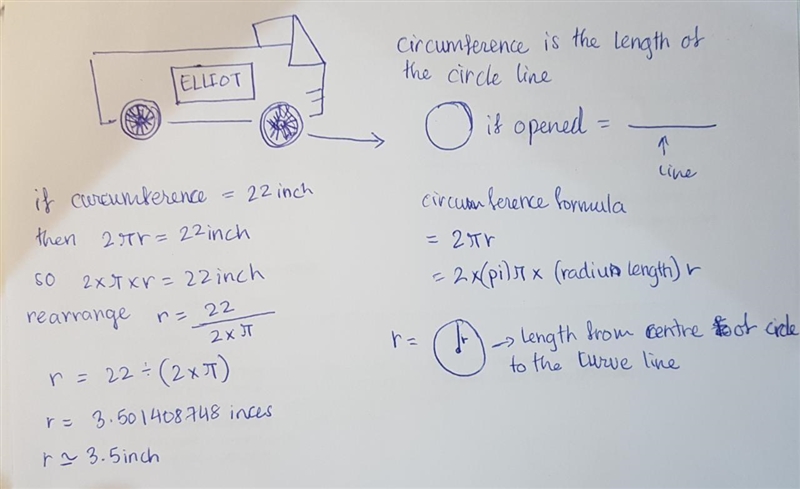 ELLIOT
circumference is the length of
the circle line
if opened =
line
if curcumference = 22 inch
then 2πr = 22 inch
so 2xπxr = 22 inch
rearrange r = 22
2 x π
r = 22 ÷ (2 x π)
r = 3.501408748 inces
r ≃ 3.5 inch
circumference formula
= 2πr
= 2 x (pi) π x (radius length) r
r = r → length from centre of circle
to the curve line